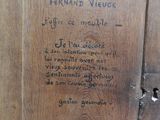 FERNAND VIEUGE
Ce meuble
Je l'ai décoré
à son intention pour qu'il
lui rappelle avec nos
vieux souvenirs les
sentiments affectueux
de son cousin germain
gaston